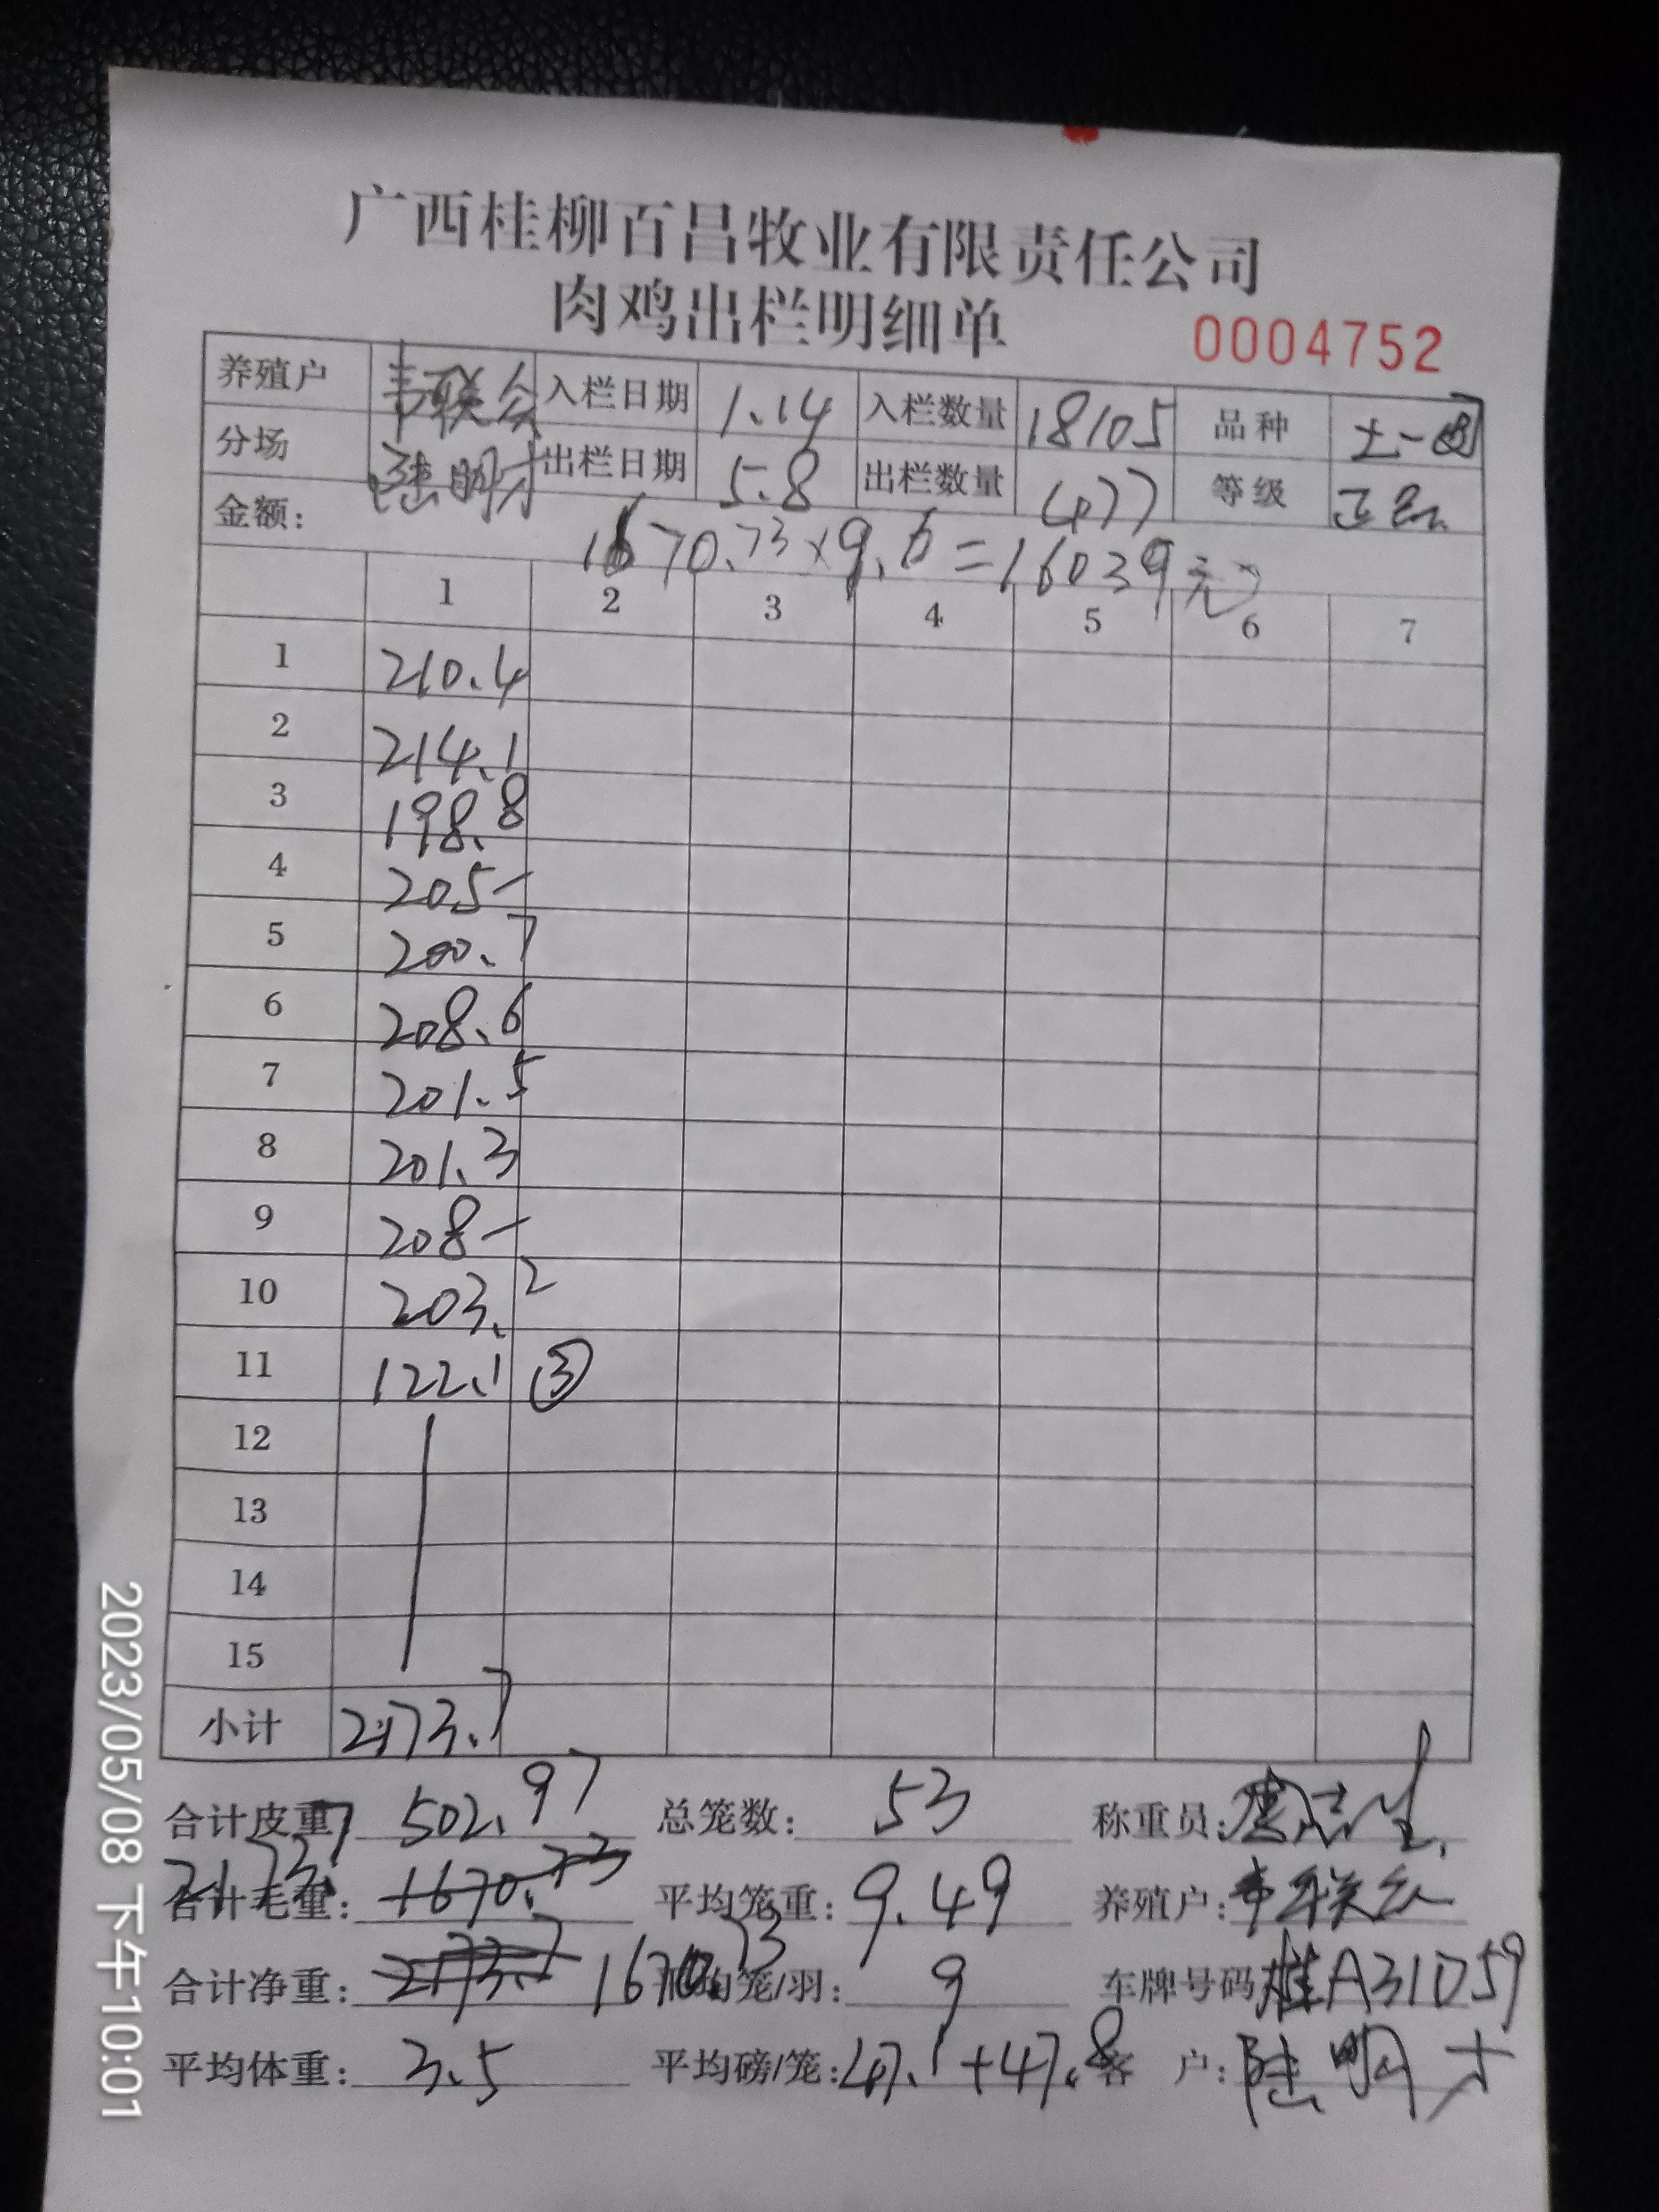 广西桂柳百昌牧业有限责任公司
肉鸡出栏明细单
0004752
养殖户 韦联会 入栏日期 1.14 入栏数量 18105 品种 土一
分场 陆明才 出栏日期 5.8 出栏数量 477 等级 正品
金额: 1670.73×9.6=16039元
1 2 3 4 5 6 7
1 210.4
2 214.1
3 198.8
4 205-
5 200.7
6 208.6
7 201.5
8 201.3
9 208-
10 203.2
11 122.1 ③
12
13
14
15
小计 2173.7
合计皮重: 502.97 总笼数: 53 称重员:
2173.7
合计毛重: 1670.73 平均笼重: 9.49 养殖户: 韦联会
合计净重: 2173.7 1670.73 平均笼/羽: 9 车牌号码 桂A31D59
平均体重: 3.5 平均磅/笼: 47.1+47.8 客户: 陆明才
2023/05/08 下午10:01